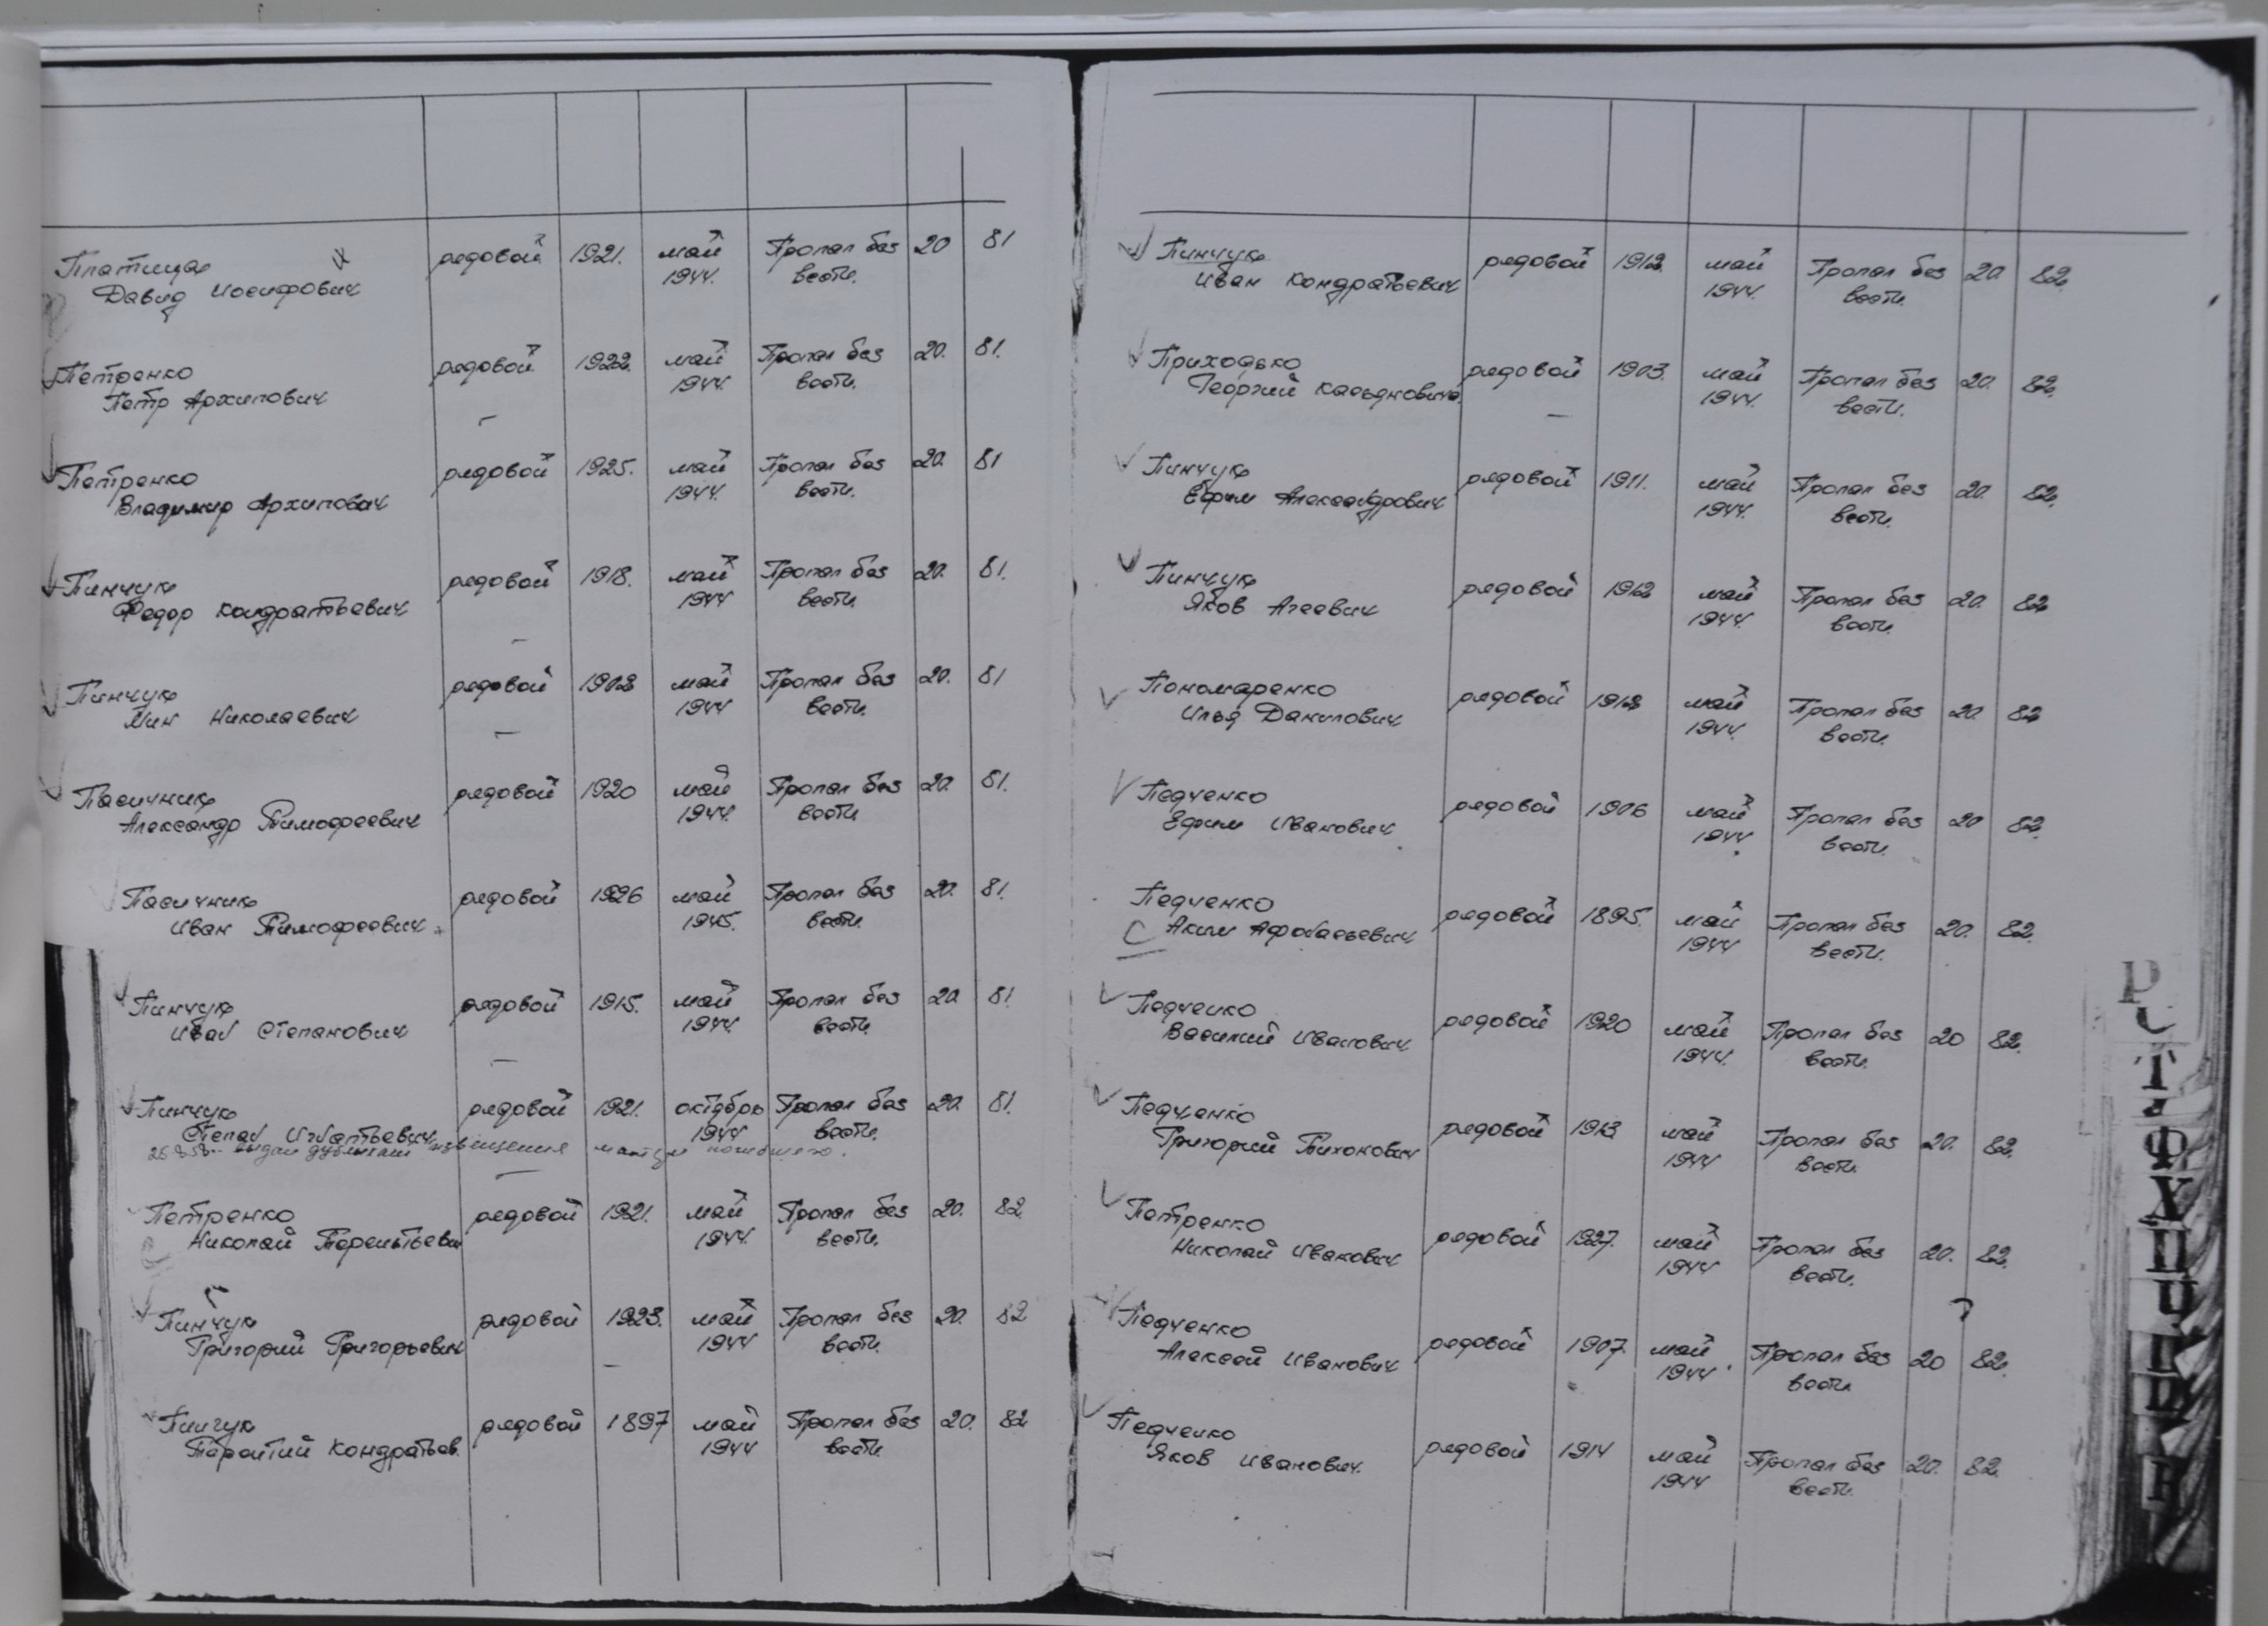 Платица рядовой 1921. май Пропал без 20 81
Давид Иосифович 1944. вести.
Петренко рядовой 1922. май Пропал без 20. 81.
Петр Архипович 1944. вести.
Петренко рядовой 1925. май Пропал без 20. 81
Владимир Архипович 1944. вести.
Пинчук рядовой 1918. май Пропал без 20. 81.
Федор Кондратьевич 1944 вести.
Пинчук рядовой май Пропал без 20. 81
Мин Николаевич 1944 вести.
Пасичник рядовой 1920 май Пропал без 20. 81.
Александр Тимофеевич 1944. вести
Пасичник рядовой 1926 май Пропал без 20. 81.
Иван Тимофеевич 1945. вести.
Пинчук рядовой 1915. май Пропал без 20 81.
Иван Степанович 1944. вести.
Пинчук рядовой 1921. октябрь Пропал без 20. 81.
Степан Игнатьевич 1944 вести.
выдан дубликат извещения
Петренко рядовой 1921. май Пропал без 20. 82
Николай Терентьеви 1944. вести.
Пинчук рядовой 1923. май Пропал без 20. 82
Григорий Григорьевич 1944 вести.
Пинчук рядовой 1897 май Пропал без 20. 82
Терентий Кондратьев. 1944 вести.
Пинчук рядовой 1912. май Пропал без 20 82.
Иван Кондратьевич 1944. вести.
Приходько рядовой 1903. май Пропал без 20. 82.
Георгий Касьянович. 1944. вести.
Пинчук рядовой 1911. май Пропал без 20. 82.
Ефим Александрович 1944. вести.
Пинчук рядовой 1912 май Пропал без 20. 82
Яков Агеевич 1944. вести.
Пономаренко рядовой май Пропал без 20. 82
Илья Данилович 1944. вести.
Педченко рядовой 1906 май Пропал без 20 82.
Ефим Иванович 1944 вести.
Педченко рядовой 1895. май Пропал без 20. 82.
Аким Афанасьевич 1944 вести.
Педченко рядовой 1920 май Пропал без 20 82.
Василий Иванович 1944. вести.
Педченко рядовой 1913 май Пропал без 20. 82.
Григорий Тихонович 1944 вести.
Петренко рядовой 1927. май Пропал без 20. 82.
Николай Иванович 1944 вести.
Педченко рядовой 1907. май Пропал без 20 82.
Алексей Иванович 1944 вести
Педченко рядовой 1914 май Пропал без 20. 82.
Яков Иванович. 1944 вести.
Р
С
Т
Ф
Х